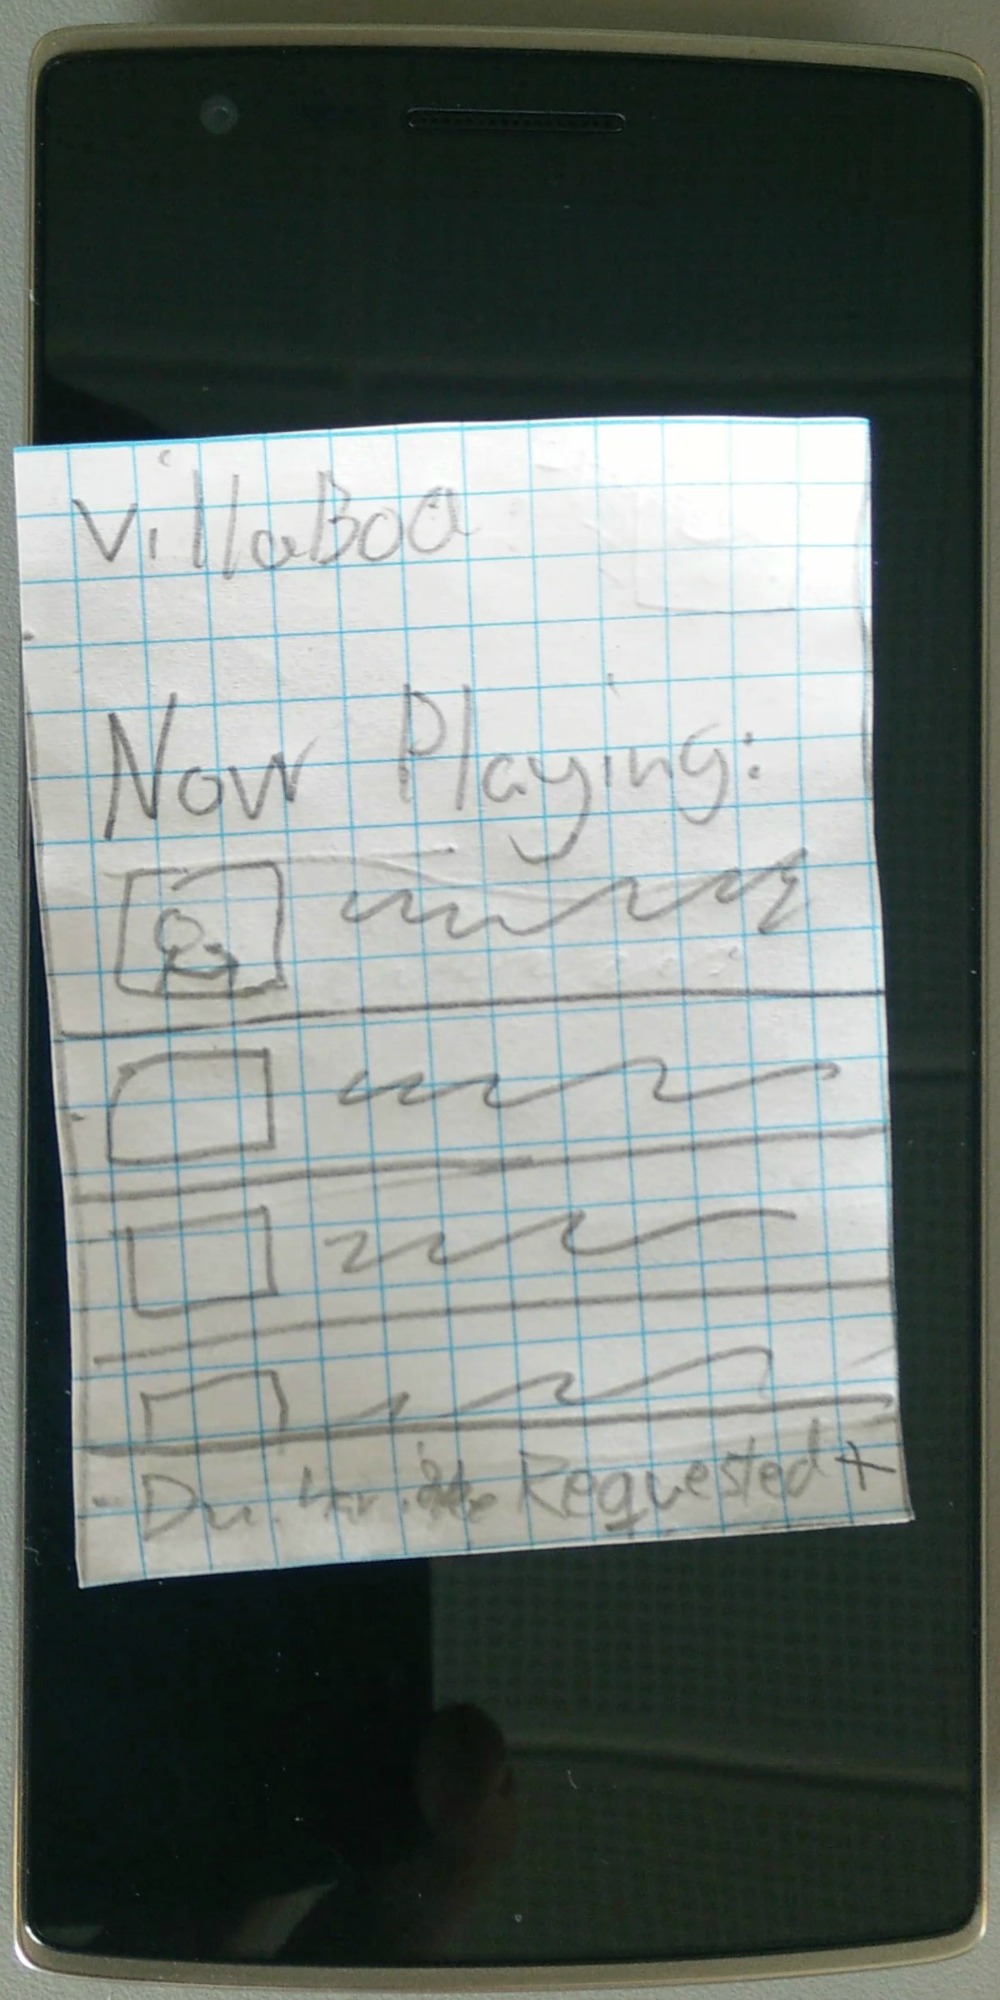 VillaBoa
Now Playing:
Du har Requested +